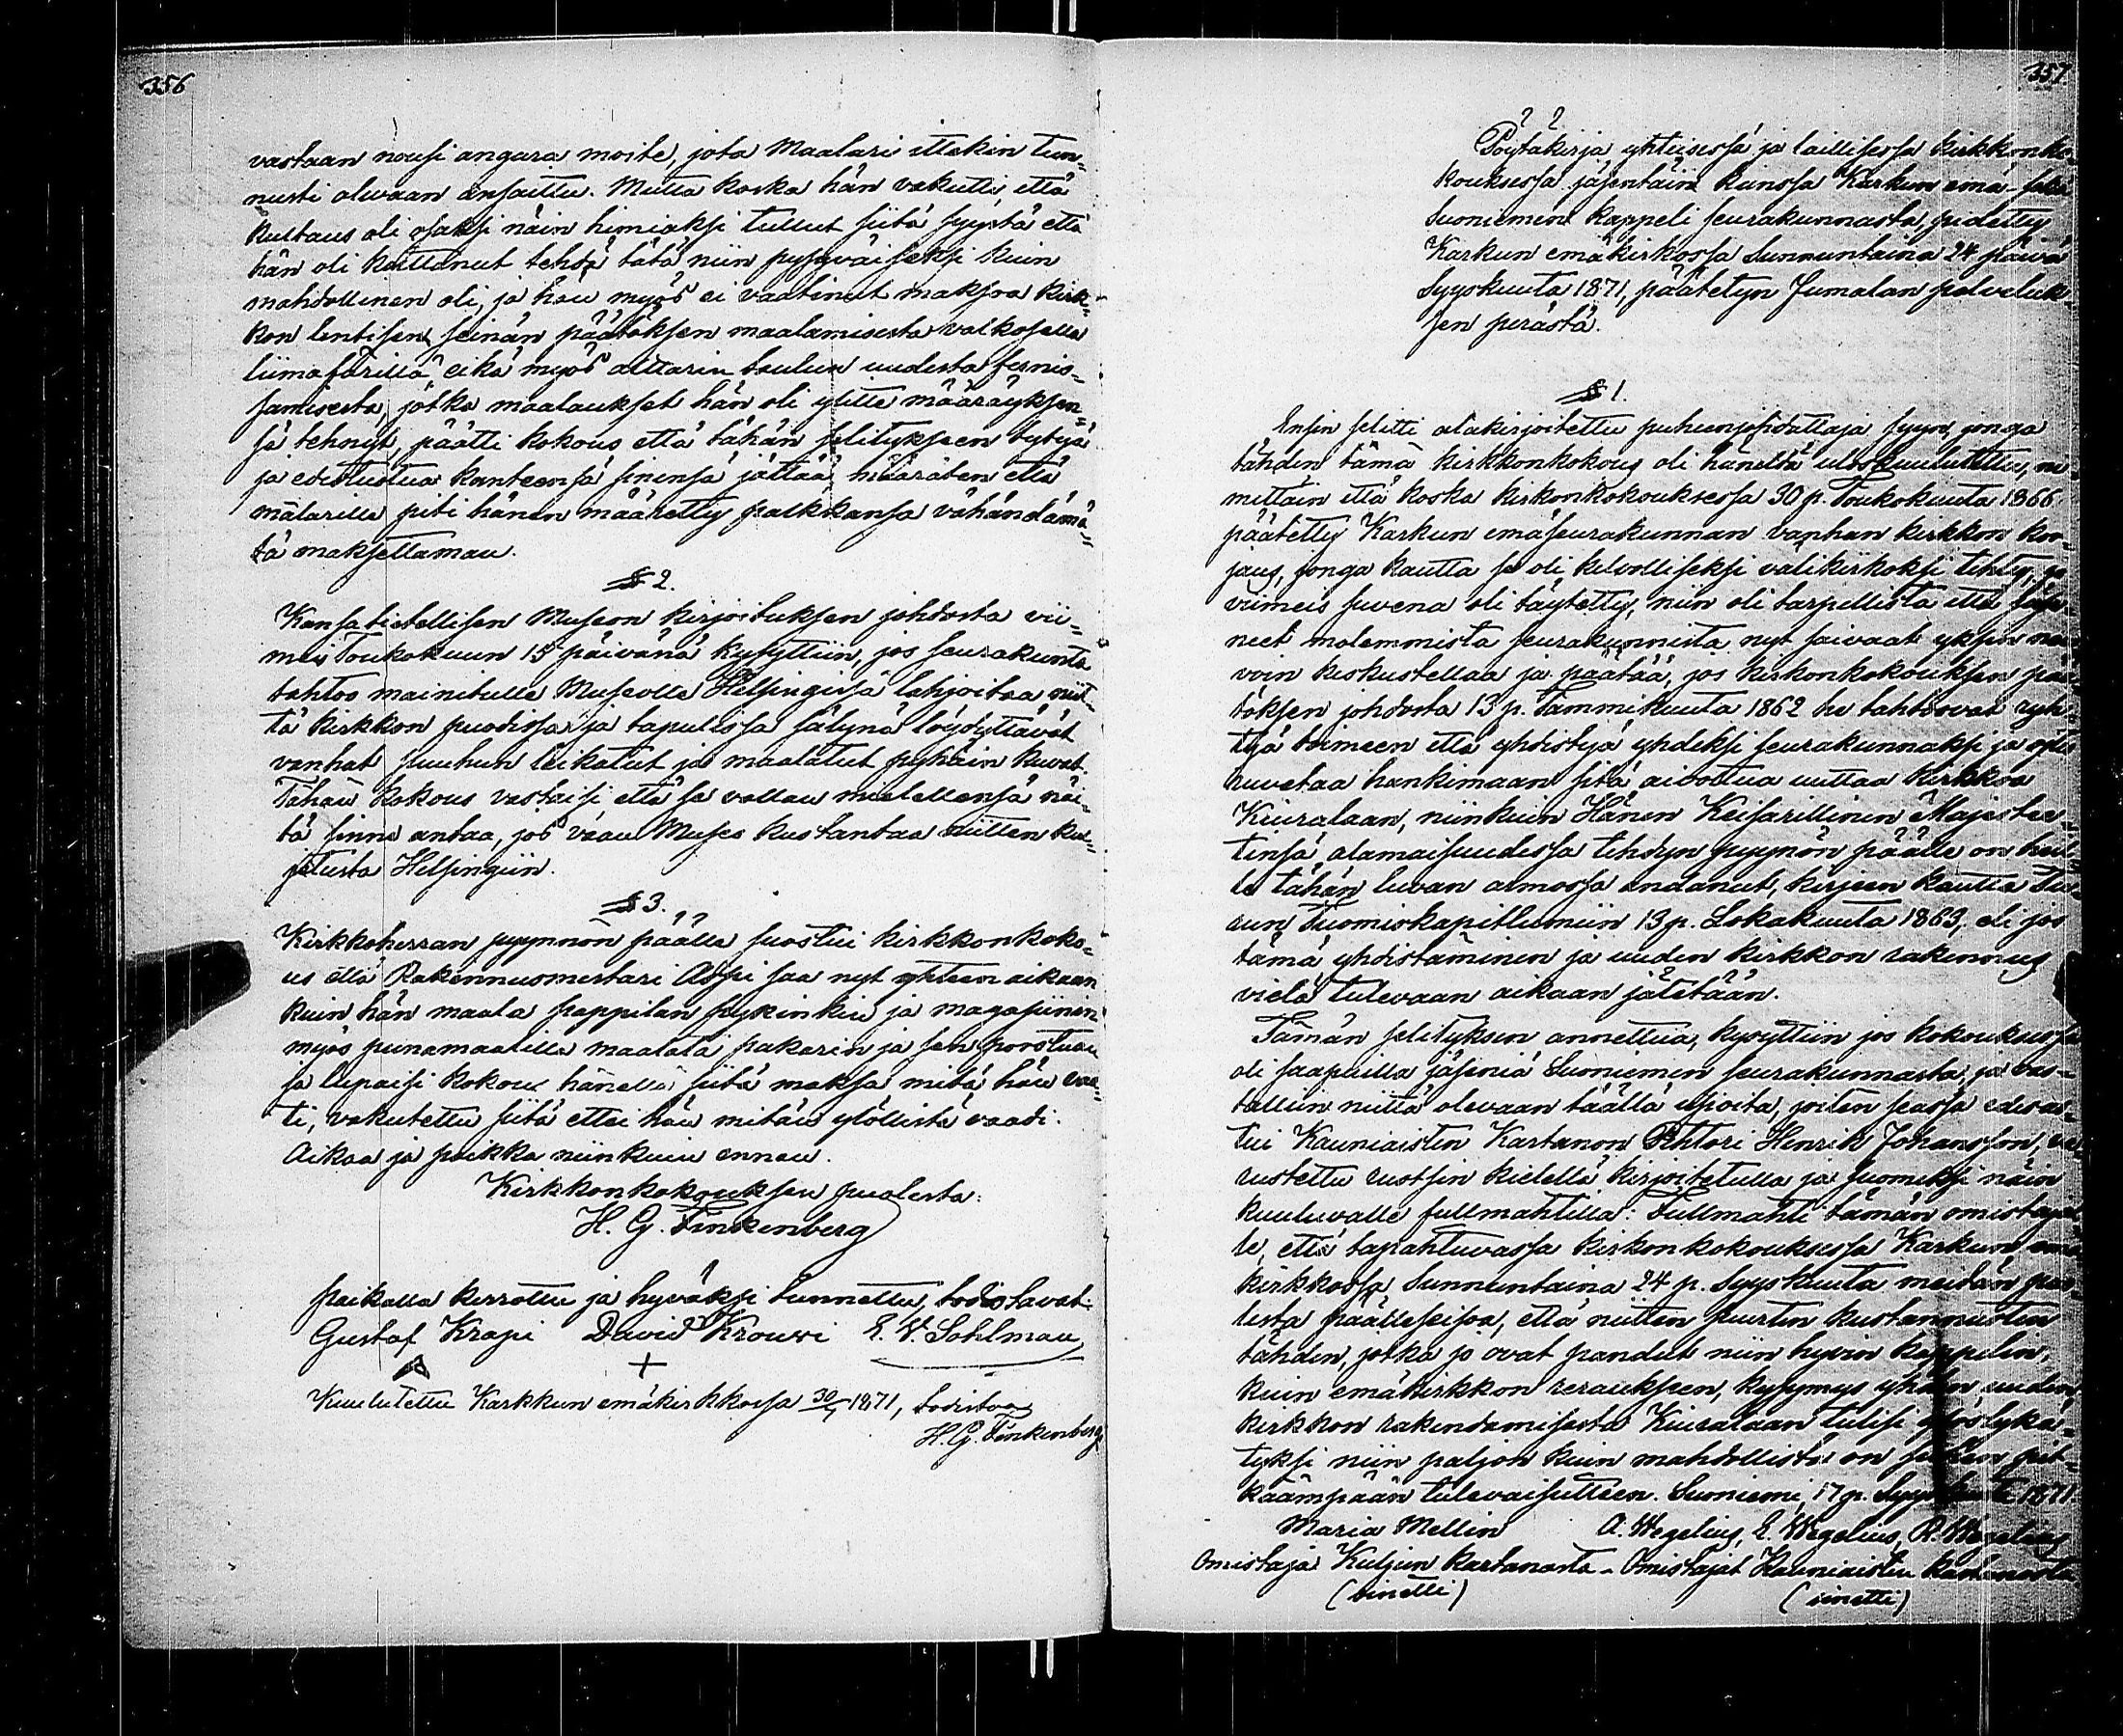 356
vastaan nousi angara moite, jota Maalari ittekin tun-
nusti olevaan ansaittu. Mutta koska hän vakutti että
kustaus oli osaksi näin himiäksi tullut siitä syystä että
hän oli koittanut tehdä tätä niin pysyväiseksi kuin
mahdollinen oli, ja hän myös ei vaatinut maksoa kirk-
kon lentisen seinän päätöksen maalamisesta valkosella
liimafärillä eikä myös alttarin taulun uudesta fernis-
samisesta, jotka maalaukset hän oli ylitte määräyksen-
sä tehnyt, päätti kokous että tähän selitykseen tytyä
ja edistuutua kanteensä sinensä jättää, määräten että
mälarilla piti hänen määretty palkkansa vähändämä-
tä maksettaman.
§ 2.
Kansatietellisen Museon kirjoituksen johdosta vii-
meis Toukokuun 15 päivänä kysyttiin, jos seurakunta
tahtoo mainitulle Museolle Helsingissä lahjoittaa niit-
tä kirkkon puodissa ja tapulissa sälynä löydyttävät
vanhat puuhun leikatut ja maalatut pyhäin kuvat.
Tähän kokous vastaisi että se vallan mielellensä näi-
tä sinne antaa, jos vaan Museo kustantaa niitten kul-
jetusta Helsingiin.
§ 3.
Kirkkoherran pyynnön päälle suostui kirkkonkoko-
us että Rakennuomestari Aspi saa nyt yhteen aikaan
kuin hän maala pappilan fysinkin ja magasiinin
myös punamaalilla maalata pakarin ja sen porstuan
ja lupaisi kokous hänellä siitä maksa mitä hän vaa-
ti, vakutettu siitä ettei hän mitän ylöllistä vaadi.
Aikaa ja paikka niinkuin ennen.
Kirkkonkokouksen puolesta:
H. G. Finkenberg
paikalla kerrottu ja hyväksi tunnettu, todistavat.
Gustaf Krapi David Krouvi E. V. Sahlman
Kuulutettu Karkkun emäkirkkossa 30/7 1871, todistaa
H. G. Finkenberg
357
Pöytäkirja yhteisessä ja laillisessa kirkkonko-
kouksessa jäsentäin kanssa Karkun emä- sekä
Suoniemen Kappeli seurakunnasta, pidetty
Karkun emäkirkossa Sunnuntaina 24 päivä
Syyskuuta 1871, päätetyn Jumalan palveluk-
sen perästä.
§ 1.
Ensin selitti alakirjoitettu puheenjohdattaja syyn, jonga
tähden tämä kirkkonkokous oli häneltä uloskuulutettu, ni-
mittäin että koska kirkonkokouksessa 30 p. Toukokuuta 1866
päätetty Karkun emäseurakunnan vanhan kirkkon kor-
jaus, jonga kautta se oli kelvolliseksi välikirkoksi tehty, ja
viimeis suvena oli täytetty, niin oli tarpellista että jäse-
net molemmista seurakunnista nyt saivaat yksin neu-
voin keskustellaa ja päätää, jos kirkonkokouksen pää-
töksen johdosta 13 p. Tammikuuta 1862 he tahtovat ryh-
tyä toimeen että yhdistyä yhdeksi seurakunnaksi ja
ruvetaa hankimaan sitä aivottua uuttaa kirkkoa
Kiuralaan, niinkuin Hänen Keisarillinen Majestee-
tinsä alamaisuudessa tehdyn pyynön päälle on heil-
le tähän luvan armossa andanut, kirjeen kautta Tu-
run Tuomiokapitlumiin 13 p. Lokakuuta 1863, eli jos
tämä yhdistäminen ja uuden kirkkon rakennus
vielä tulevaan aikaan jätetään.
Tämän selityksen annettua, kysyttiin jos kokouksessa
oli saapuilla jäseniä Suoniemen seurakunnasta, ja vas-
tattiin niitä olevaan täällä usioita, joiten seassa edesas-
tui Kauniaisten Kartanon Rehtori Henrik Johansson, va-
rustettu ruotsin kielellä kirjoitetulla ja suomeksi näin
kuuluvalle fullmahtilla: Fullmahti tämän omistajal-
le, että tapahtuvassa kirkonkokouksessa Karkun emä-
kirkkossa Sunnuntaina 24 p. Syyskuuta meidän puo-
lesta päälleseisoa, että niitten suurten kustannusten
tähden, jotka jo ovat pandut niin hyvin kappelin,
kuin emäkirkkon reraukseen, kysymys yhden uuden
kirkkon rakendamisesta Kiuralaan tulisi ylöslykä-
tyksi niin paljon kuin mahdollista on siihen pit-
käämpään tulevaisutteen. Suoniemi, 17 p. Syyskuuta 1871.
Maria Mellin A. Wegelius, E. Wegelius, R. Wegelius
Omistaja Kuljun kartanosta - Omistajat Kauniaisten kartanosta
(sinetti) (sinetti)